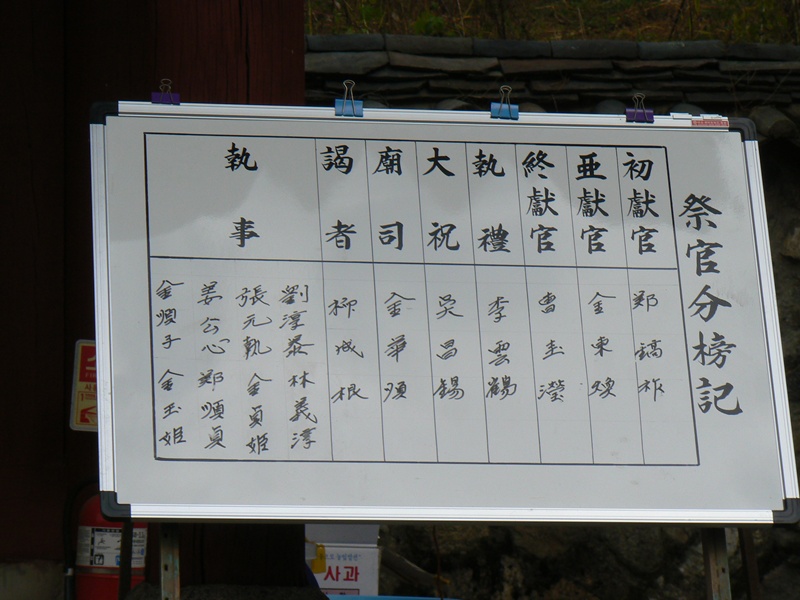 祭官分榜記
初獻官
鄭鎬祚
亜獻官
金東煥
終獻官
曺圭瀅
執禮
李雲鶴
大祝
吳昌錫
廟司
金華順
謁者
柳成根
執事
劉淳泰 林義淳
張元執 金貞姬
姜公心 鄭順貞
金順子 金玉姬
사과